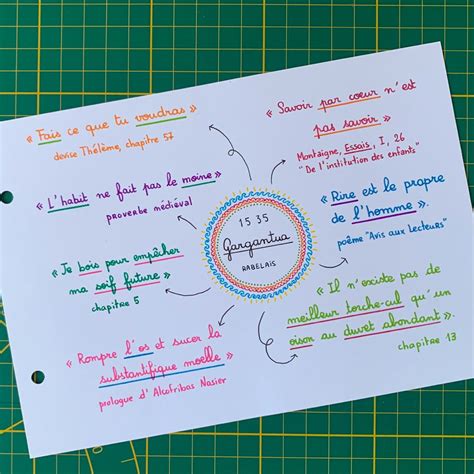 « Fais ce que tu voudras »
devise Thélème, chapitre 57
« Savoir par cœur n'est
pas savoir »
Montaigne, Essais, I, 26
"De l'institution des enfants"
« L'habit ne fait pas le moine »
proverbe médiéval
« Rire est le propre
de l'homme ».
poème "Avis aux Lecteurs"
1535
Gargantua
RABELAIS
« Je bois pour empêcher
ma soif future »
chapitre 5
« Il n'existe pas de
meilleur torche-cul qu'un
oison au duvet abondant ».
chapitre 13
« Rompre l'os et sucer la
substantifique moelle »
prologue d'Alcofribas Nasier